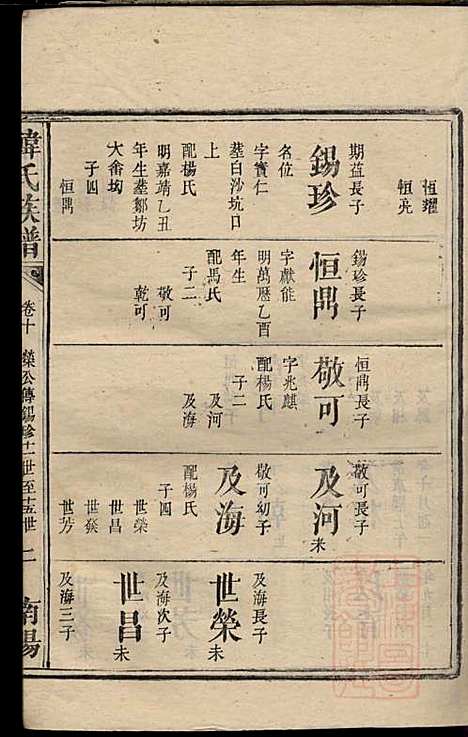 恒耀
恒亮
期益長子
錫珍
名位
字實仁
塟白沙坑口
上
配楊氏
明嘉靖乙丑
年生塟鄒坊
大畬坳
子四
恒鼎
錫珍長子
恒鼎
字獻能
明萬歷乙酉
年生
配馬氏
子二
敬可
乾可
恒鼎長子
敬可
字兆麒
配楊氏
子二
及河
及海
敬可長子
及河 未
敬可幼子
及海
配楊氏
子四
世榮
世昌
世葵
世芳
及海長子
世榮 未
及海次子
世昌 未
及海三子
韓氏族譜
卷十
榮公傳錫珍十一世至十五世
二
南陽